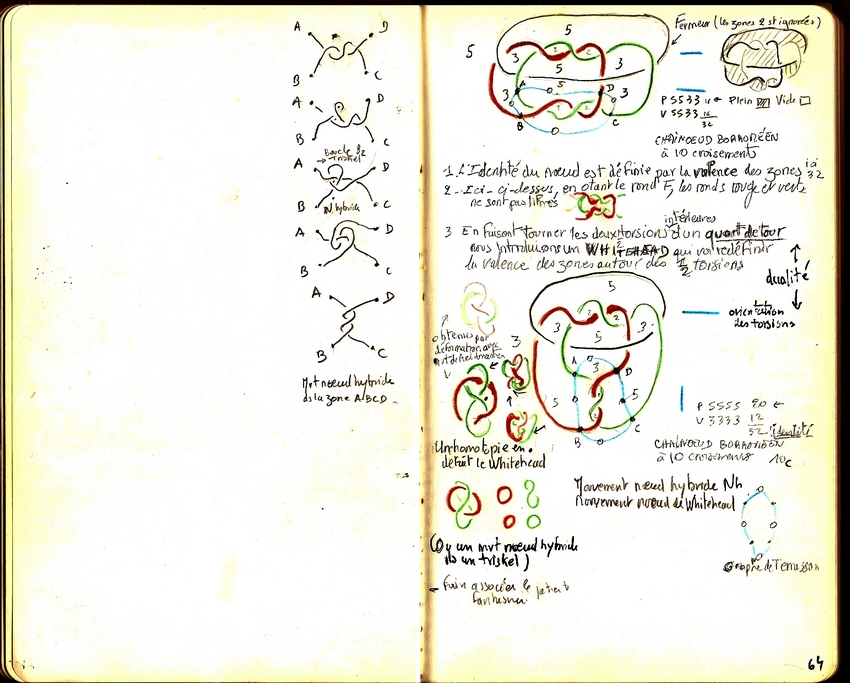 A D
B C
A D
B C
Boucle
triskel
A
D
B C
N. hybride
A D
B C
A D
B C
Mvt noeud hybride
ds la zone ABCD
Fermeur (les zones 2 st ignorées)
5
5
3 2 2 3
5
3 A D 3
B C
P 5533 16
V 5533 16
32
Plein Vide
CHAINOEUD BORROMÉEN
à 10 croisements
1. L'Identité du noeud est définie par la valence des zones ici 32
2. Ici ci-dessus, en otant le rond F, les ronds rouge et vert
ne sont pas libres
intérieures
3 En faisant tourner les deux torsions d'un quart de tour
nous introduisons un WHITEHEAD qui va redéfinir
la valence des zones autour des 2 torsions
dualité
orientation
des torsions
5
3 2 2 3
5
A 3 D
5 5
B C
obtenus par
déformation
3
P 5555 20
V 3333 12
32
identité
CHAINOEUD BORROMÉEN
à 10 croisements
10c
Une homotopie en
défait le Whitehead
Mouvement noeud hybride Nh
Mouvement noeud de Whitehead
(Ou un mvt noeud hybride
ds un triskel)
Graphe de Terrasson
associer le
64